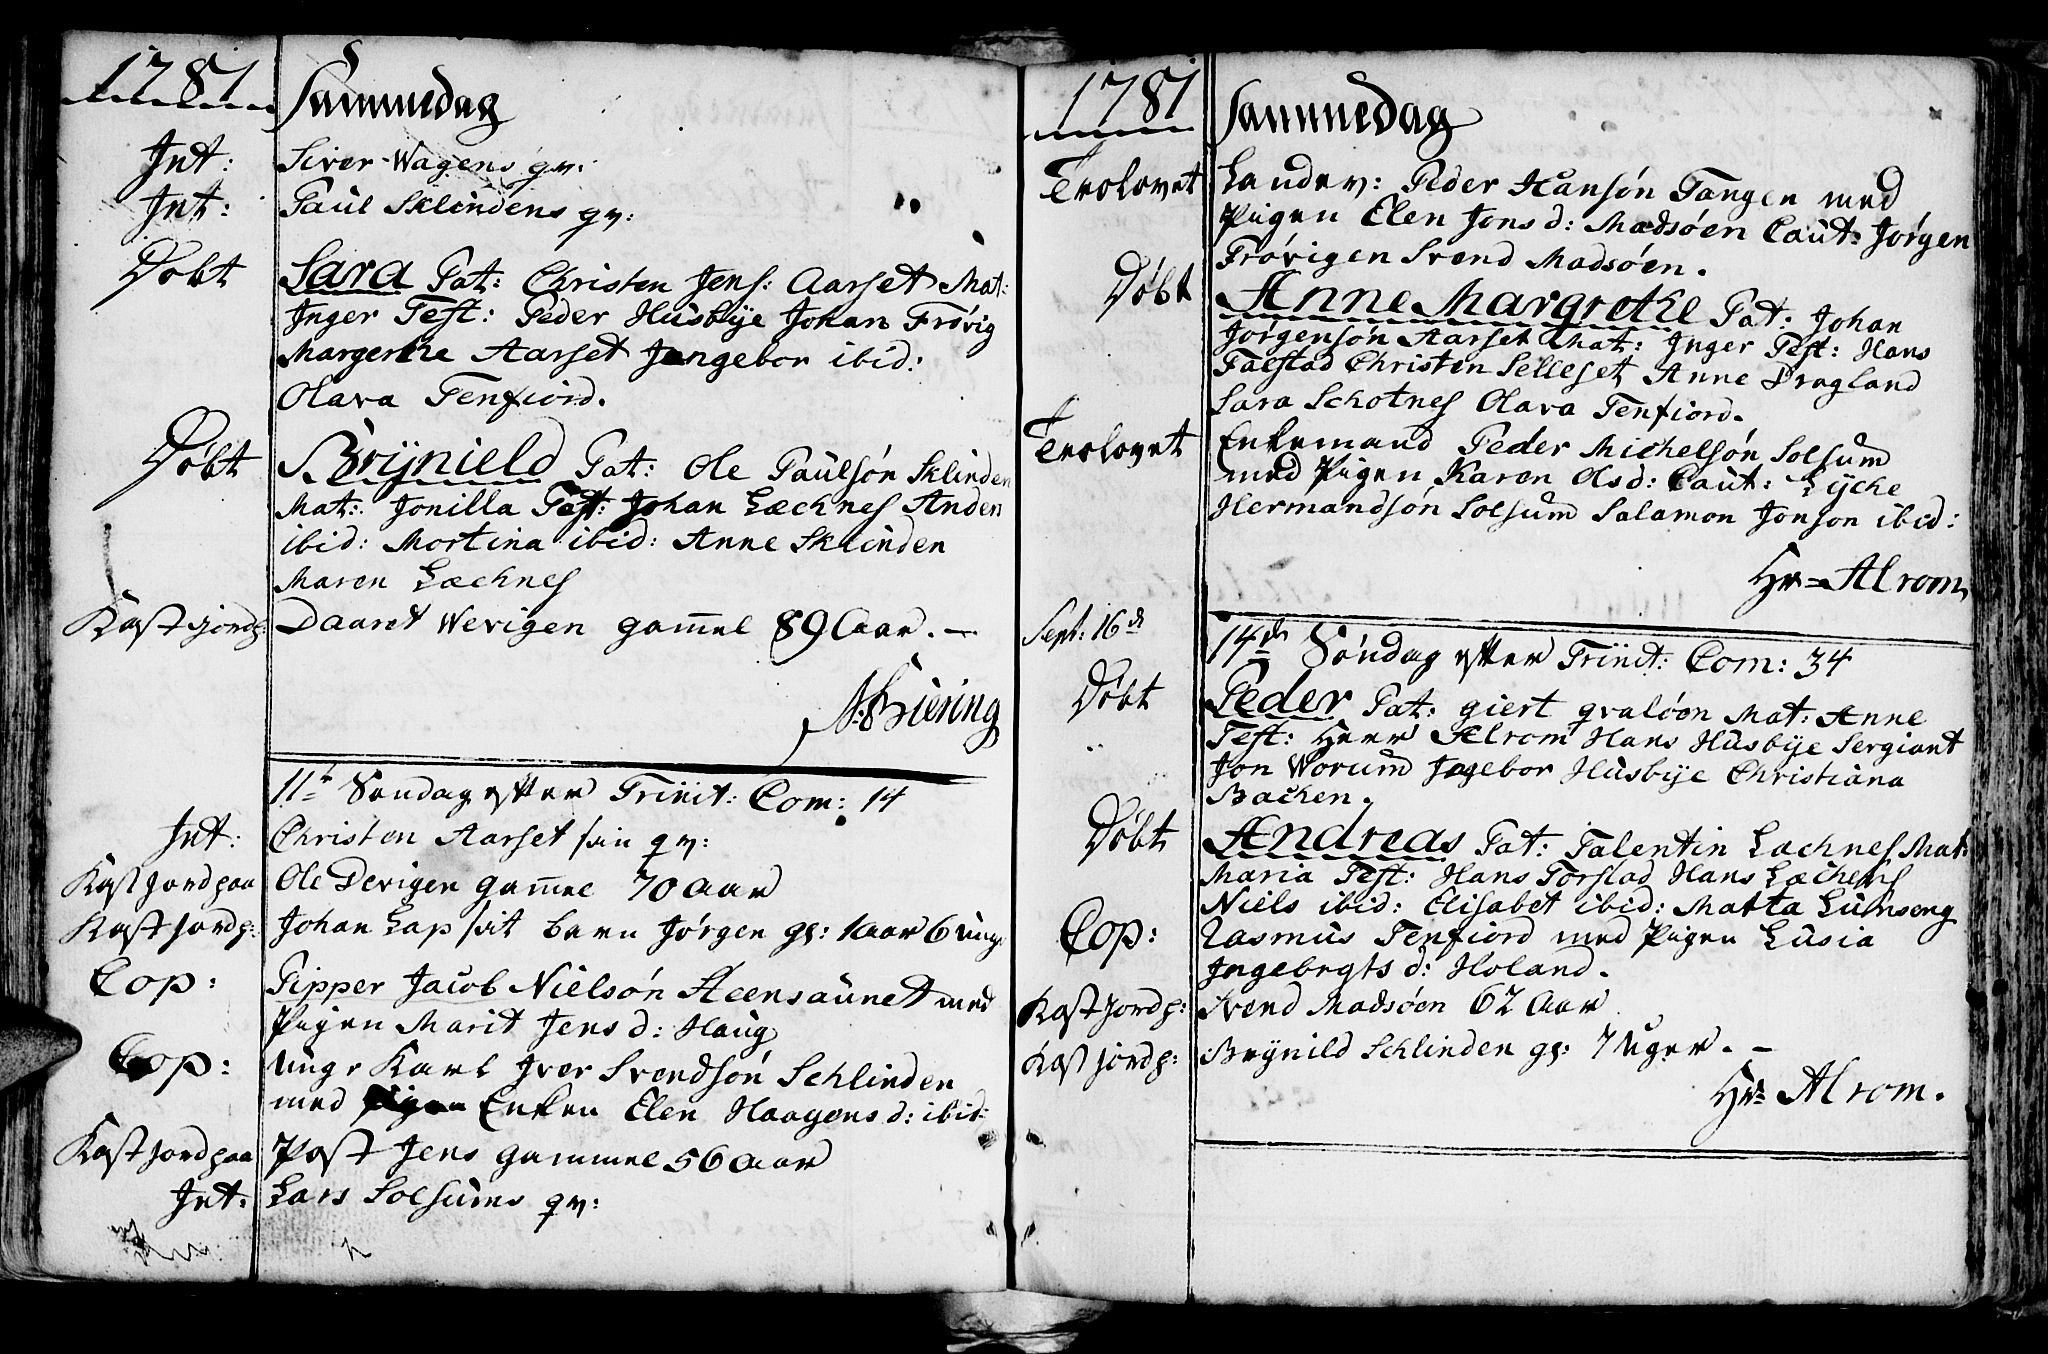 1781
Sammedag
Int: Siver Wagens qv:
Int: Paul Sklindens qv:
Døbt Sara Pat: Christen Jens: Aarset Mat:
Inger Test: Peder Husbye Johan Frøvig
Margerthe Aarset Jengebor ibid:
Olava Tenfiord.
Døbt Brynield Pat: Ole Paulsøn Sklinden
Mat: Jonilla Test: Johan Læchnes Anden
ibid: Mortina ibid: Anne Sklinden
Maren Læchnes
Kast jordp: Daaret Wevigen gam̄el 89 Aar. —
N: Biering
11te Søndag efter Triinit: Com: 14
Int: Christen Aarset sin qv:
Kast jord paa Ole Devigen gam̄el 70 Aar
Kast jord p: Johan Lap sit barn Jørgen gl: 1 aar 6 ug:
Cop: Pipper Jacob Nielsøn Steensaunet med
Pigen Marit Jens d: Haug
Cop: Ung Karl Iver Svendsøn Schlinden
med Enken Elen Haagens d: ibid:
Kast jord paa Post Jens gammel 56 Aar
Int: Lars Solsums qv:
1781
Sammedag
Trolovet Landev: Peder Hansøn Tangen med
Pigen Elen Jons d: Madsøen Caut: Jørgen
Frøvigen Svend Madsøen.
Døbt Anne Margrethe Pat: Johan
Jørgensøn Aarset Mat: Inger Test: Hans
Falstad Christen Selleset Anne Dragland
Sara Schotnes Olava Tenfiord.
Trolovet Enkemand Peder Michelsøn Solsum
med Pigen Karen Ols d: Caut: Lycke
Hermandsøn Solsum Salamon Jonson ibid:
Hr= Alrom
Sept: 16de 14de Søndag efter Triinit: Com: 34
Døbt Peder Pat: giert qvaløen Mat: Anne
Test: Herr Alrom Hans Husbye Sergiant
Jon Worum Ingebor Husbye Christiana
Bachen.
Døbt Andreas Pat: Falentin Lachnes Mat:
Maria Test: Hans Torstad Hans Læchens
Niels ibid: Elisabet ibid: Matta Lumseng
Cop: Rasmus Tenfiord med Pigen Lusia
Ingebrgts d: Holand.
Kast jord p: Svend Madsøen 62 Aar
Kast jord p: Brynild Schlinden gl: 7 Uger. —
Hr= Alrom.